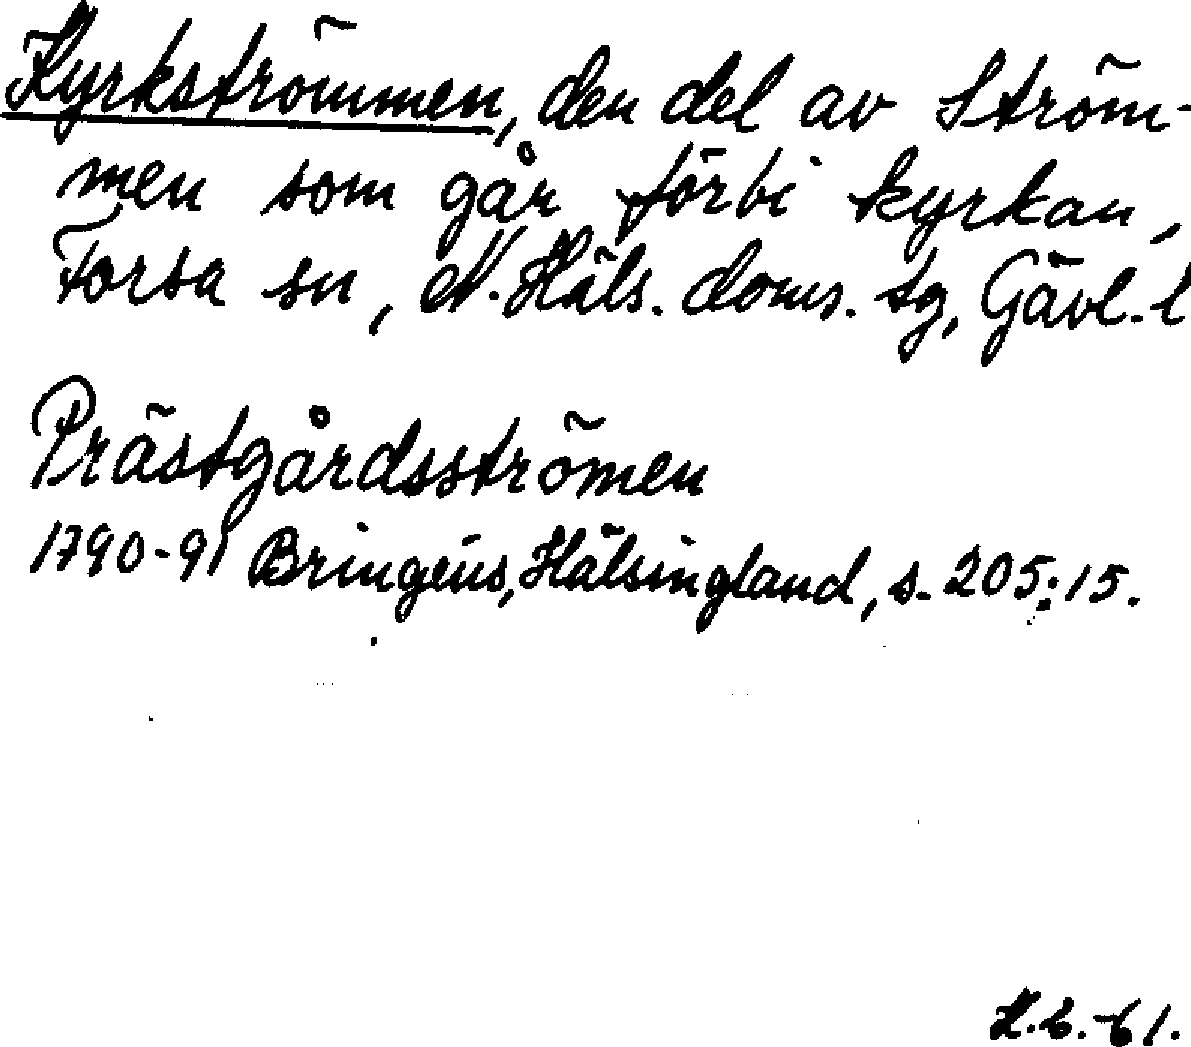 Kyrkströmmen, den del av Ström-
men som går förbi kyrkan,
Forsa sn, N. Häls. doms. tg, Gävl. l
Prästgårdsströmen
1790-91 Bringéus, Hälsingland, s. 205:15.
-61.